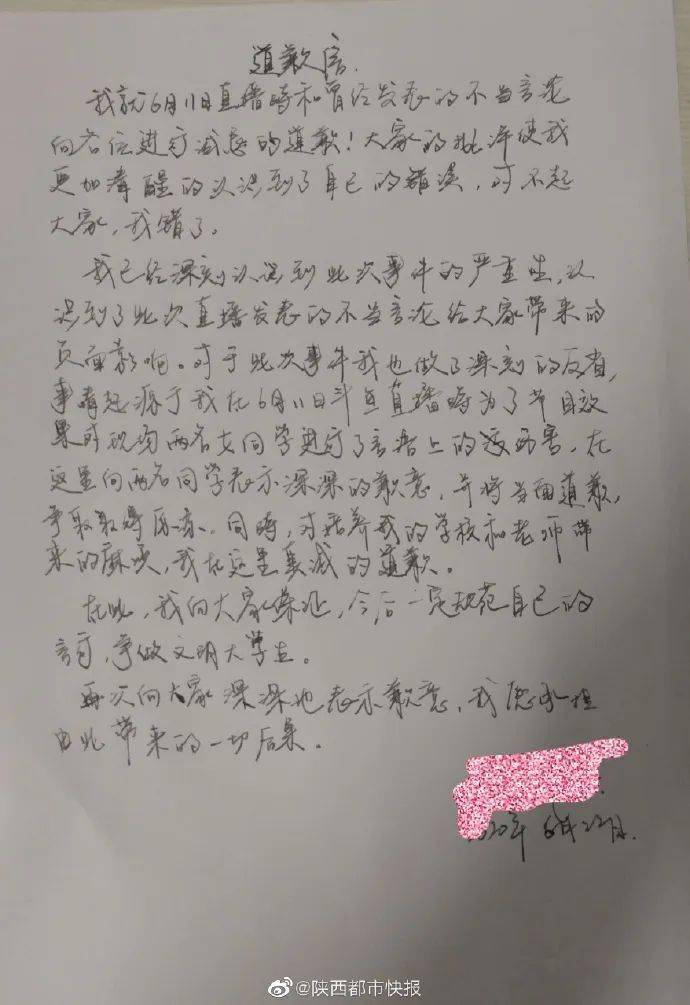 道歉信
我就6月11日直播时和曾经发表的不当言论
向各位进行诚恳的道歉！大家的批评使我
更加清醒的认识到了自己的错误，对不起
大家，我错了。
我已经深刻认识到此次事件的严重性，认
识到了此次直播发表的不当言论给大家带来的
负面影响。对于此次事件我也做了深刻的反省，
事情起源于我在6月11日斗鱼直播时为了节目效
果对现场两名女同学进行了言语上的伤害，在
这里向两名同学表示深深的歉意，并将当面道歉，
争取取得原谅。同时，对培养我的学校和老师带
来的麻烦，我在这里真诚的道歉。
在此，我向大家保证，今后一定规范自己的
言行，争做文明大学生。
再次向大家深深地表示歉意，我愿承担
由此带来的一切后果。
2020年6月22日.
@陕西都市快报